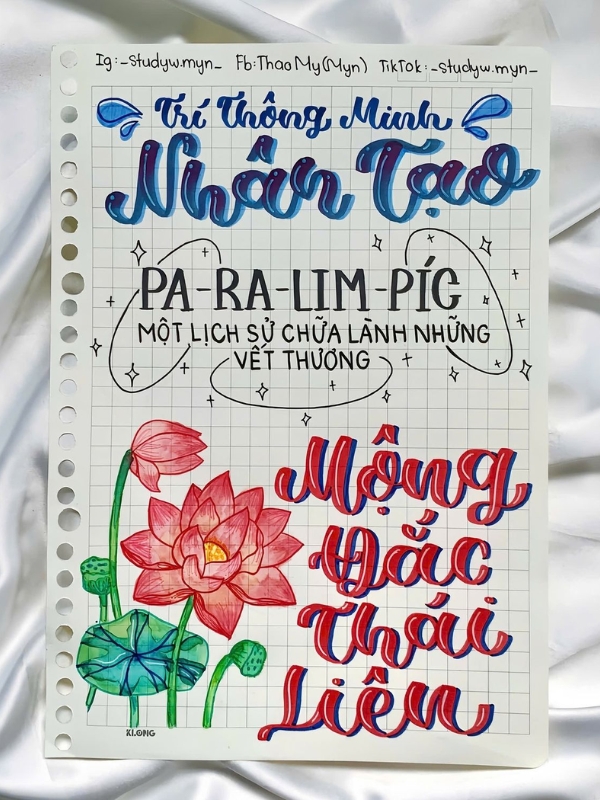 Ig:_studyw.myn_ Fb:Thao My(Myn) TikTok:_studyw.myn_
Trí Thông Minh
Nhân Tạo
PA-RA-LIM-PÍC
MỘT LỊCH SỬ CHỮA LÀNH NHỮNG
VẾT THƯƠNG
Mộng
Đắc
Thái
Liên
KLONG